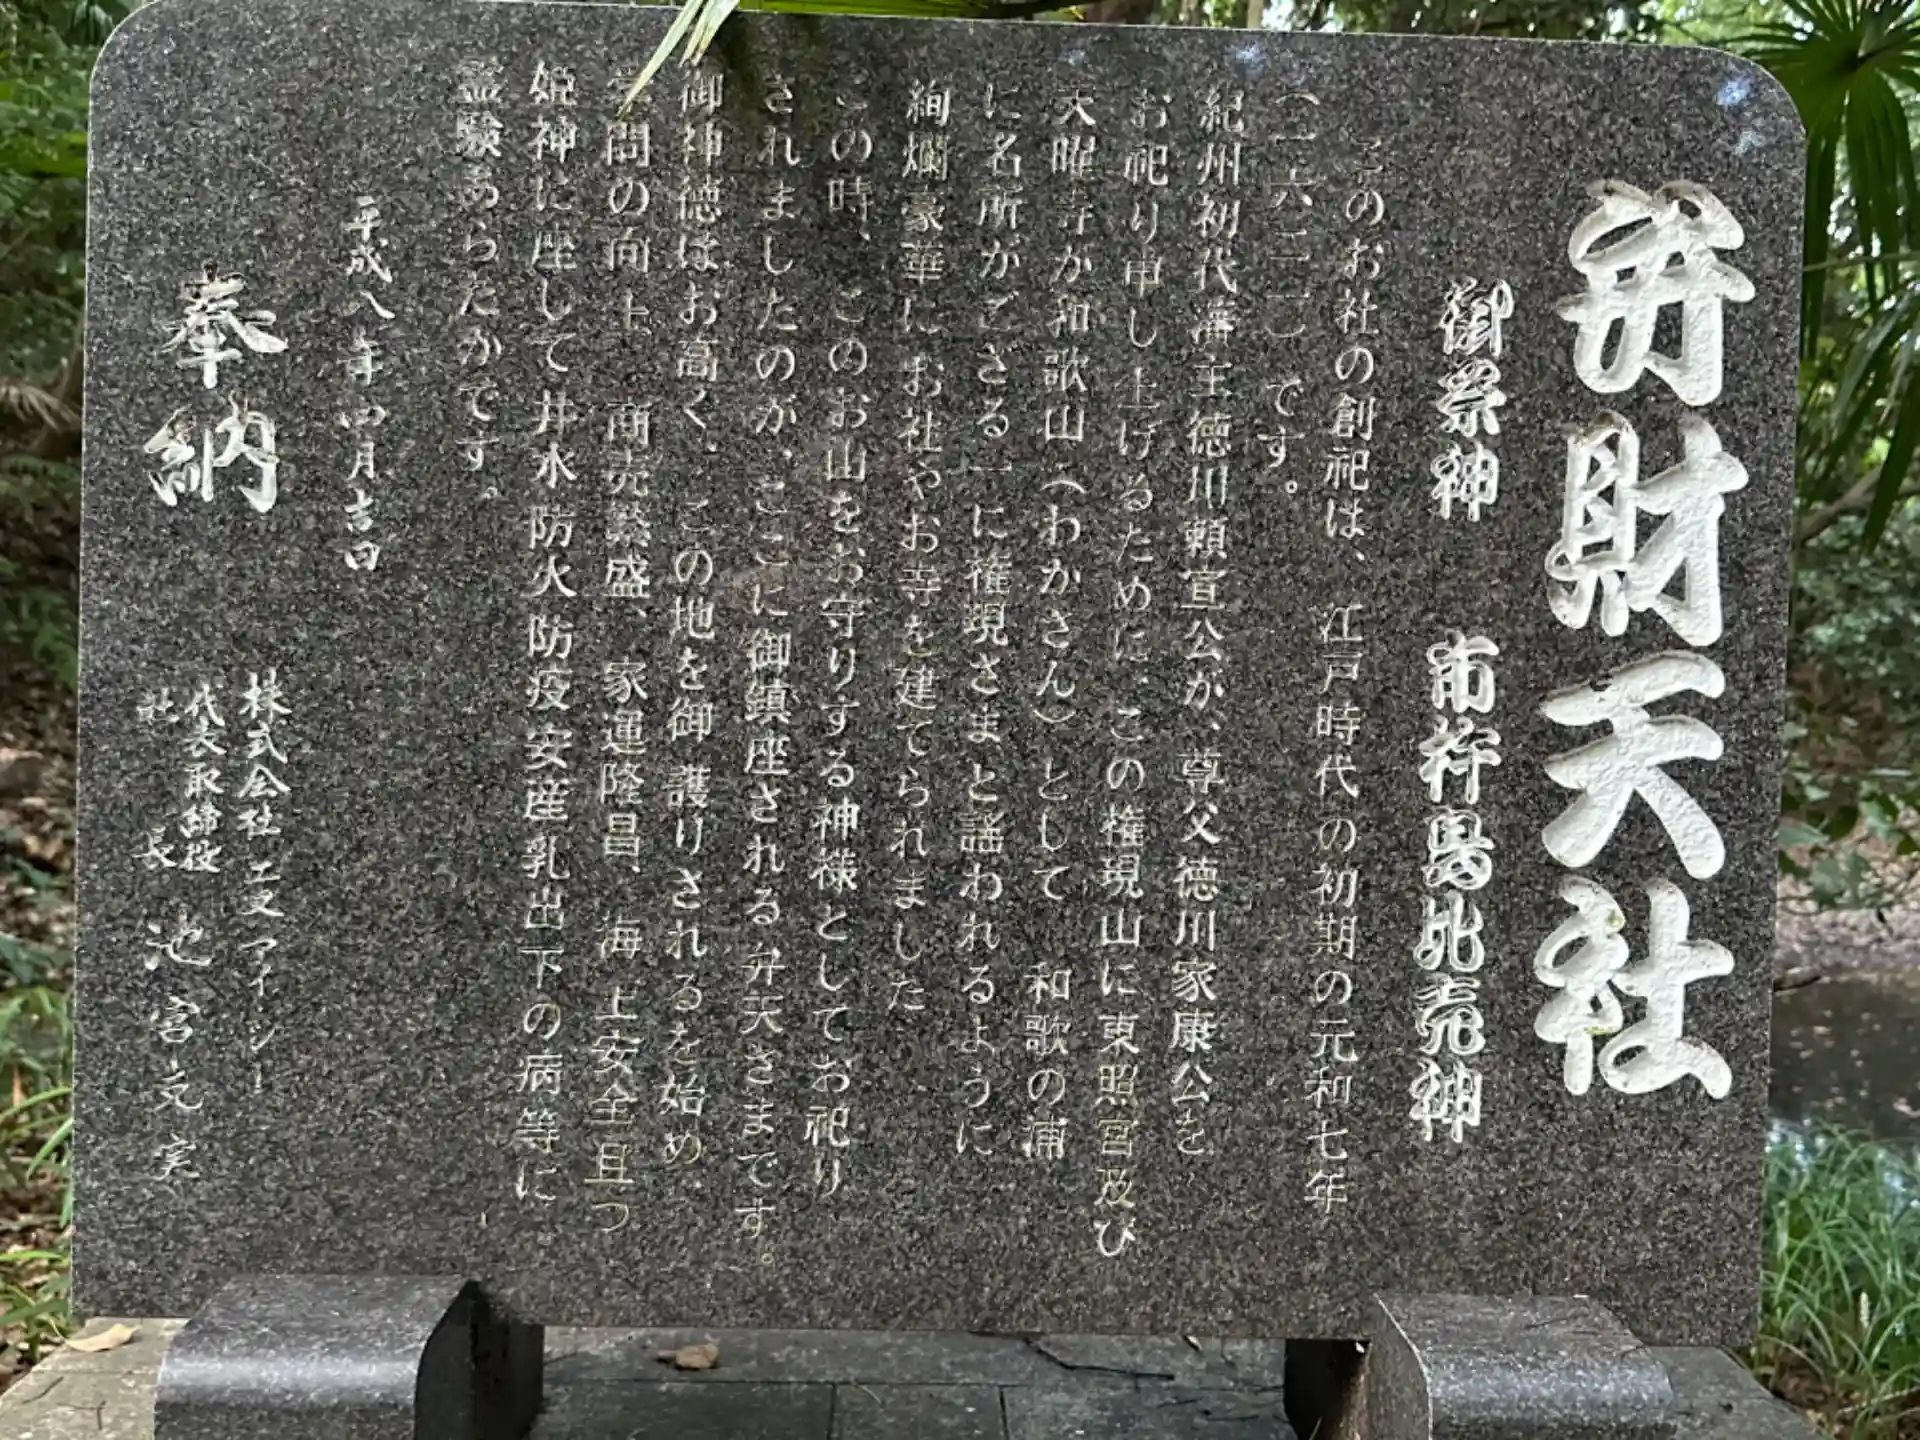 弁財天社
御祭神 市杵島比売神
このお社の創祀は、江戸時代の初期の元和七年
（一六二一）です。
紀州初代藩主徳川頼宣公が、尊父徳川家康公を
お祀り申し上げるために、この権現山に東照宮及び
天曜寺か和歌山（わかさん）として 和歌の浦
に名所がござる一に権現さまと謡われるように
絢爛豪華にお社やお寺を建てられました
この時、このお山をお守りする神様としてお祀り
されましたのが、ここに御鎮座される弁天さまです。
御神徳はお高く、この地を御守護りされるを始め、
学問の向上、商売繁盛、家運隆昌、海上安全且つ
姫神に座して井水防火防疫安産乳出下の病等に
霊験あらたかです。
平成八年四月吉日
奉納
株式会社エヌアイシー
代表取締役
社長 池宮文実